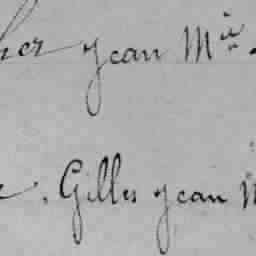 her Jean M.ie
. Gilles Jean